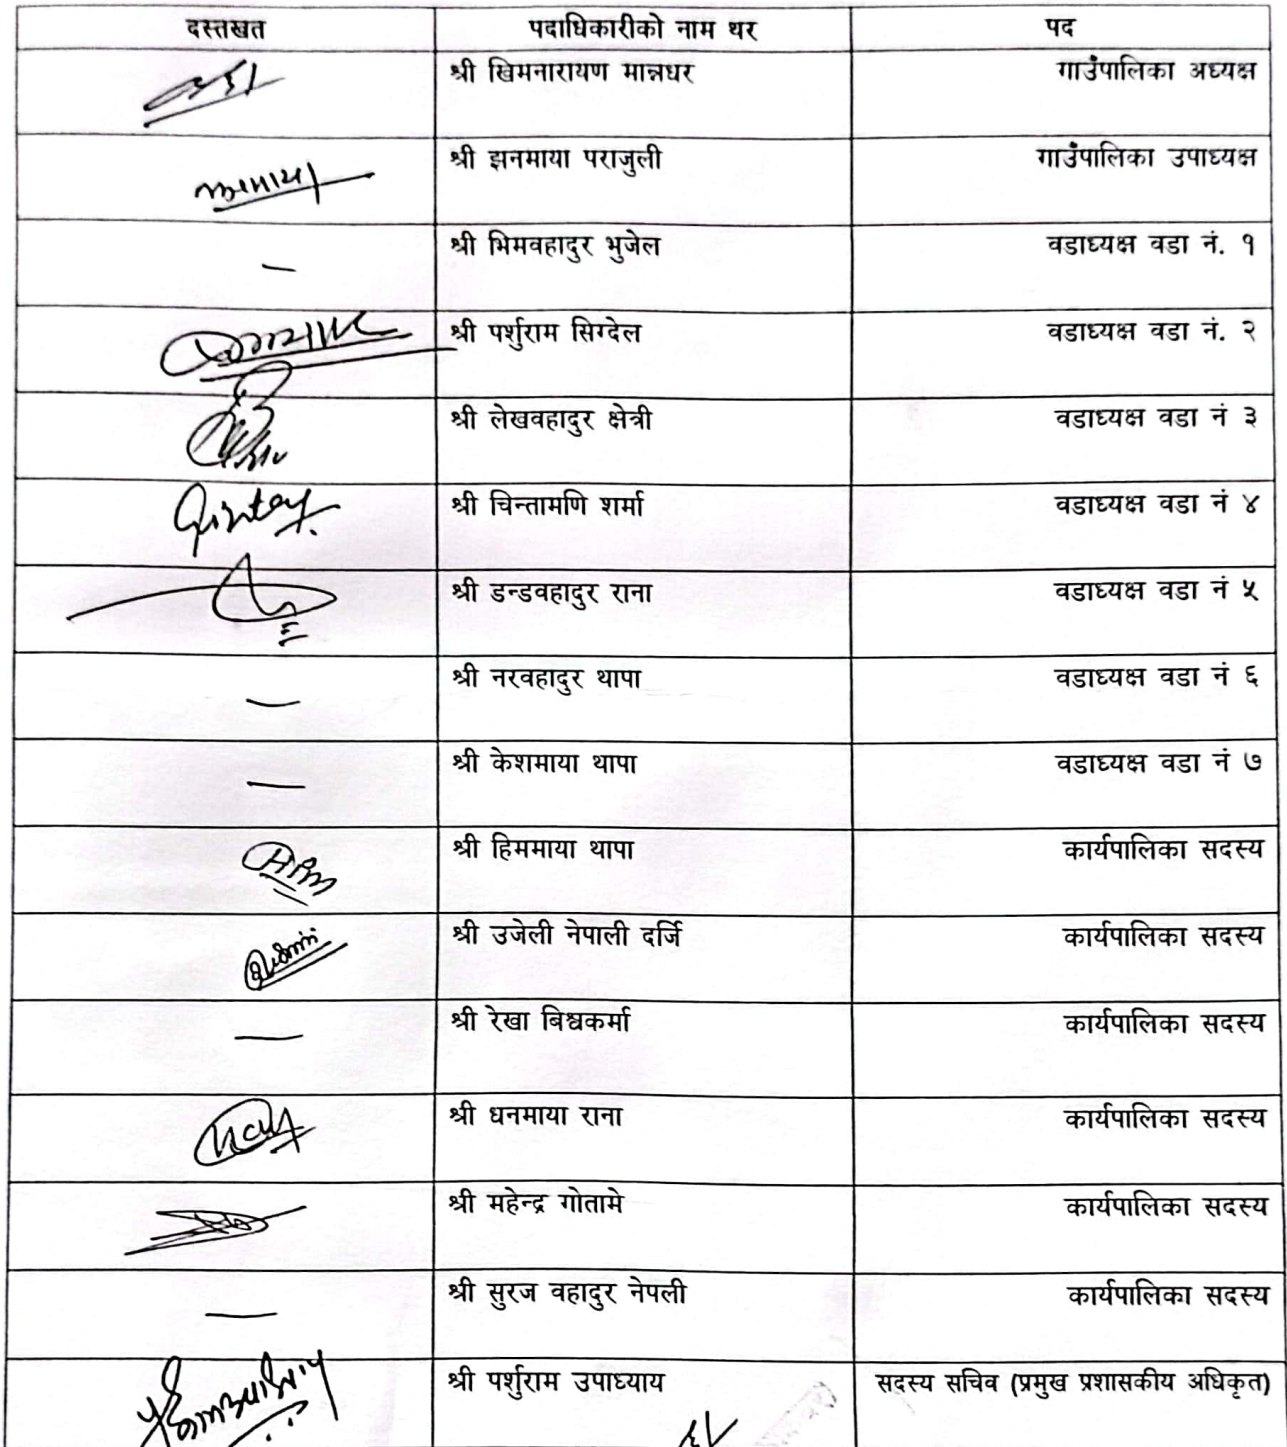 दस्तखत पदाधिकारीको नाम थर पद
श्री खिमनारायण मान्नधर गाउँपालिका अध्यक्ष
श्री झनमाया पराजुली गाउँपालिका उपाध्यक्ष
– श्री भिमवहादुर भुजेल वडाध्यक्ष वडा नं. १
श्री पर्शुराम सिग्देल वडाध्यक्ष वडा नं. २
श्री लेखवहादुर क्षेत्री वडाध्यक्ष वडा नं ३
श्री चिन्तामणि शर्मा वडाध्यक्ष वडा नं ४
श्री डन्डवहादुर राना वडाध्यक्ष वडा नं ५
– श्री नरवहादुर थापा वडाध्यक्ष वडा नं ६
– श्री केशमाया थापा वडाध्यक्ष वडा नं ७
श्री हिममाया थापा कार्यपालिका सदस्य
श्री उजेली नेपाली दर्जि कार्यपालिका सदस्य
– श्री रेखा बिश्वकर्मा कार्यपालिका सदस्य
श्री धनमाया राना कार्यपालिका सदस्य
श्री महेन्द्र गोतामे कार्यपालिका सदस्य
– श्री सुरज वहादुर नेपली कार्यपालिका सदस्य
श्री पर्शुराम उपाध्याय सदस्य सचिव (प्रमुख प्रशासकीय अधिकृत)